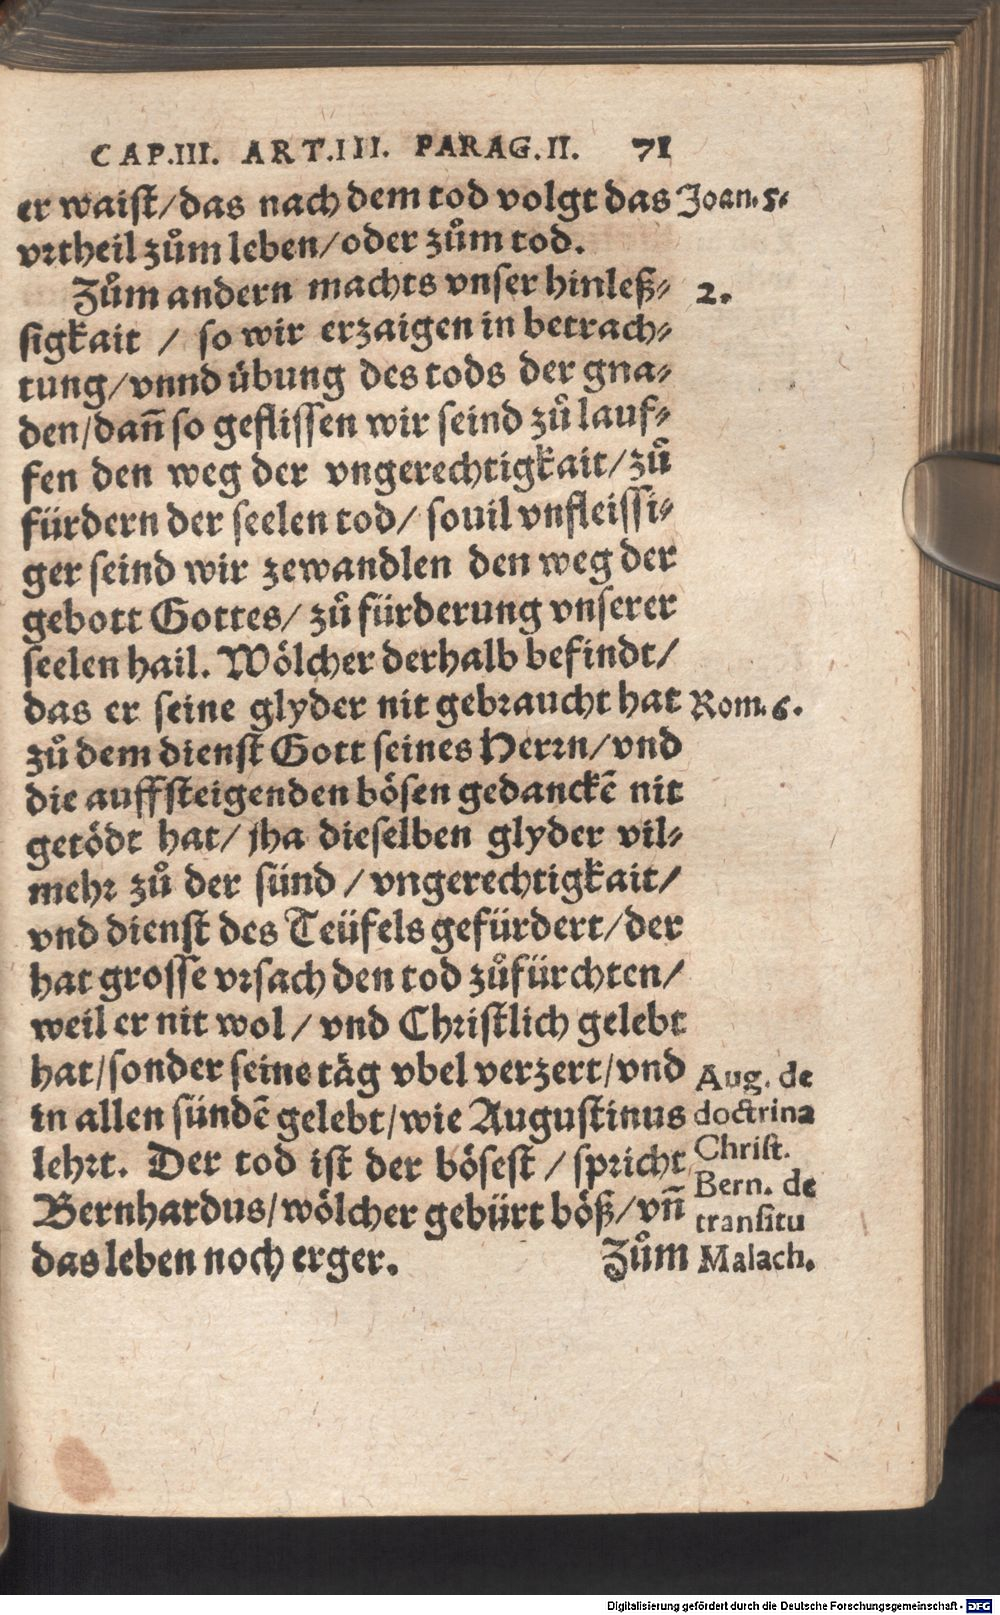 CAP.III. ART.III. PARAG.II. 71
er waist/das nach dem tod volgt das Joan.5.
vrtheil zům leben/oder zům tod.
Zům andern machts vnser hinleß- 2.
sigkait / so wir erzaigen in betrach-
tung/vnnd übung des tods der gna-
den/dañ so geflissen wir seind zů lauf-
fen den weg der vngerechtigkait/zů
fürdern der seelen tod/ souil vnfleissi-
ger seind wir zewandlen den weg der
gebott Gottes/ zů fürderung vnserer
seelen hail. Wölcher derhalb befindt/
das er seine glyder nit gebraucht hat Rom.6.
zů dem dienst Gott seines Herrn/vnd
die auffsteigenden bösen gedanckē nit
getödt hat/ jha dieselben glyder vil-
mehr zů der sünd / vngerechtigkait/
vnd dienst des Teüfels gefürdert/der
hat grosse vrsach den tod zůfürchten/
weil er nit wol / vnd Christlich gelebt
hat/sonder seine täg vbel verzert/vnd Aug. de
in allen sündē gelebt/wie Augustinus doctrina
lehrt. Der tod ist der bösest / spricht Christ.
Bernhardus/wölcher gebürt böß/vñ Bern. de
transitu
das leben noch erger. Zům Malach.
Digitalisierung gefördert durch die Deutsche Forschungsgemeinschaft - DFG